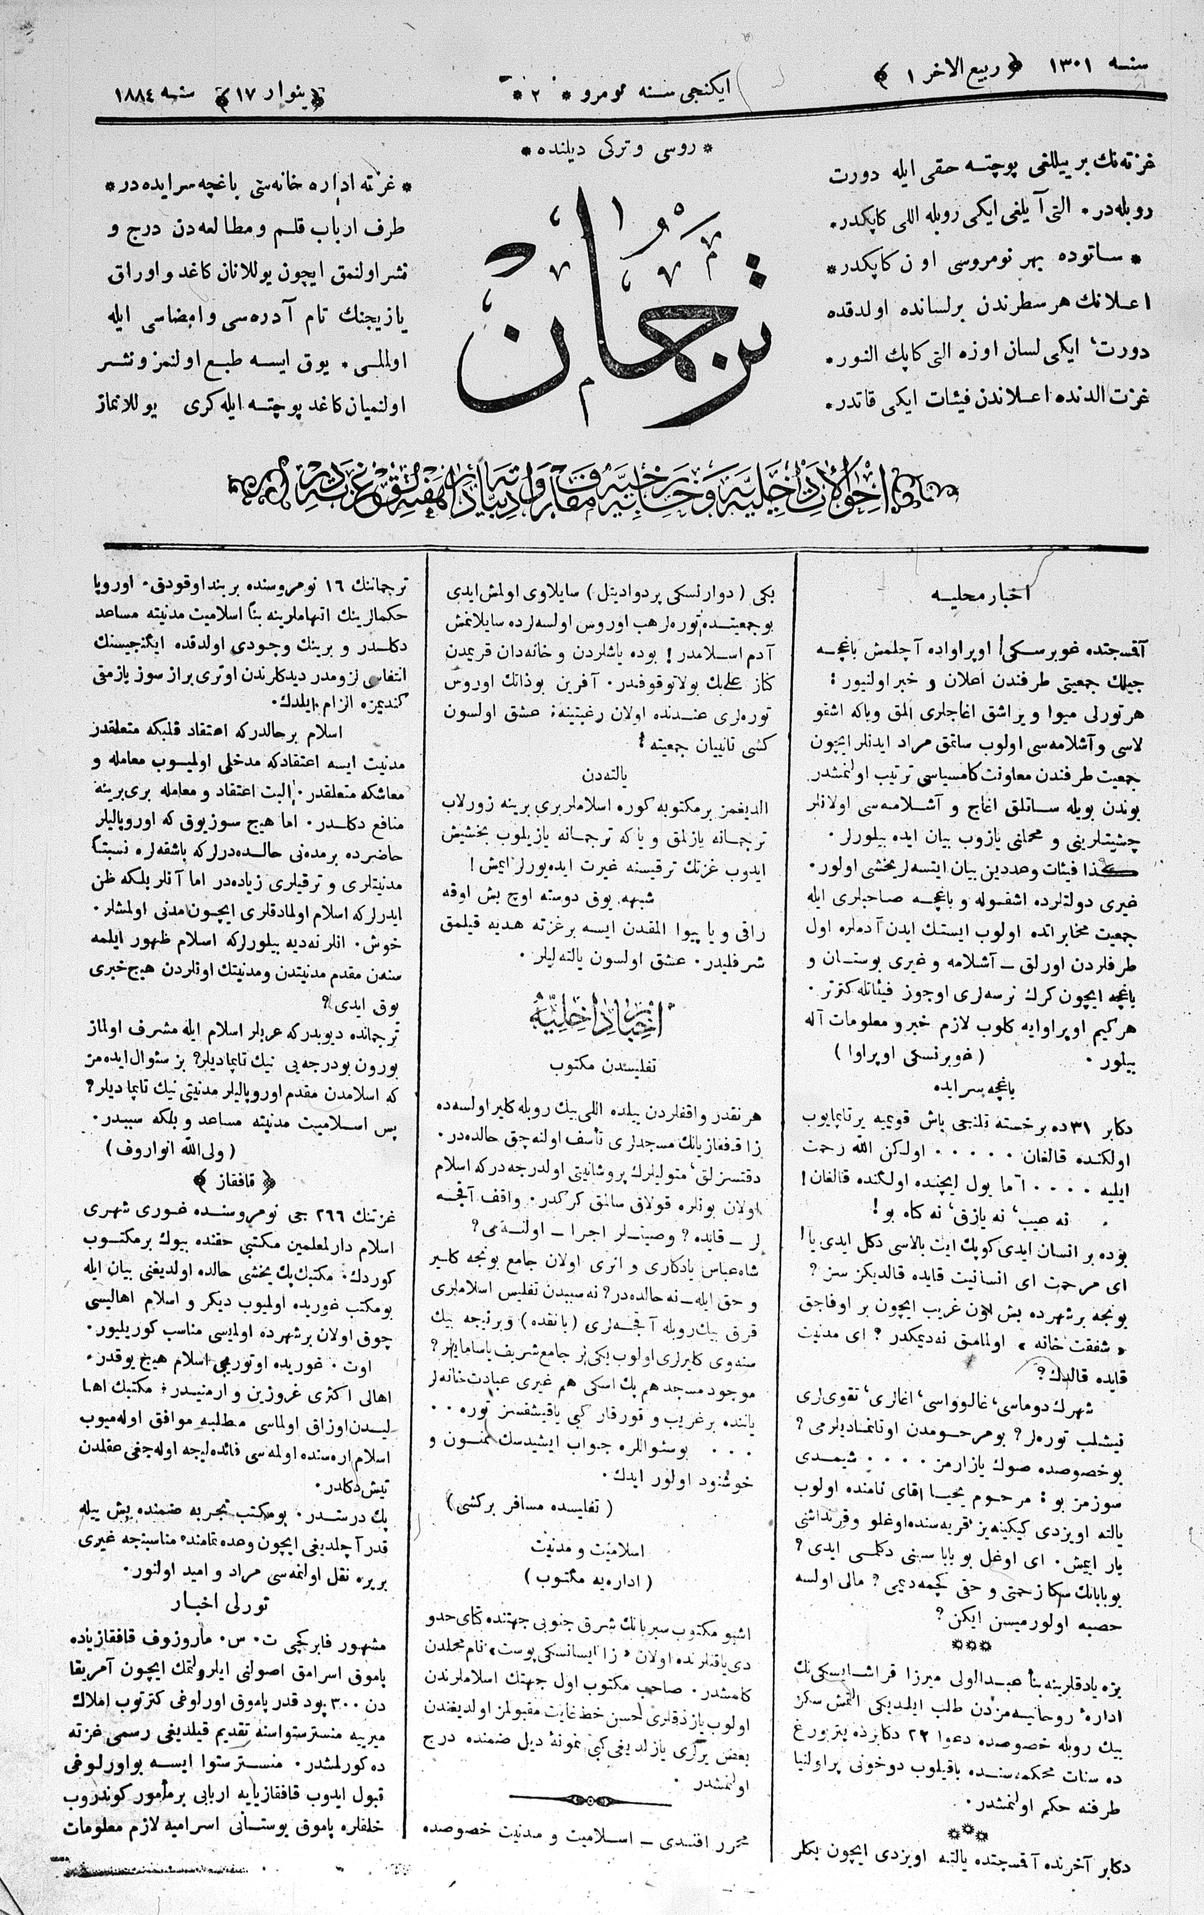 سنه ١٣٠١ ﴿ ربیع الاخر ١ ﴾
ایكنجی سنه نومرو * ٢ *
﴿ ینوار ١٧ ﴾ سنه ١٨٨٤
غزته نك بر ییللغی پوچته حقی ایله دورت
روبله در. التی آیلغی ایكی روبله اللی كاپكدر.
* ساتوده بهر نومروسی اون كاپكدر *
اعلانك هر سطرندن بر لسانده اولدقده
دورت، ایكی لسان اوزه التی كاپك النور.
غزت الدنده اعلاندن فیئات ایكی قاتدر.
* روسی و تركی دیلنده *
ترجمان
* غزته اداره خانه سی باغچه سرایده در *
طرف ارباب قلم و مطالعه دن درج و
نشر اولنمق ایچون یوللانان كاغد و اوراق
یازیجنك تام آدره سی و امضاسی ایله
اولملی. یوق ایسه طبع اولنمز و نشر
اولنمیان كاغد پوچته ایله كری یوللانماز
اخبار محلیه
آقسجتده غوبرنسكی اوپراواده آچلمش باغچه
جیلك جمعیتی طرفندن اعلان و خبر اولنیور :
هر تورلی میوا و یراشق اغاجلری المق ویاكه اشقو
لاسی و آشلامه سی اولوب ساتمق مراد ایدنلر ایچون
جمعیت طرفندن معاونت كامسیاسی ترتیب اولنمشدر
بوندن بویله ساتلق اغاج و آشلامه سی اولانلر
چشیتلرینی و محلنی یازوب بیان ایده بیلورلر.
كذا فیئات وعددین بیان ایتسه لر یخشی اولور.
غیری دولتلرده اشقوله و باغچه صاحبلری ایله
جمعیت مخابراتده اولوب ایستك ایدن آدملره اول
طرفلردن اورلق ـ آشلامه و غیری بوستان و
باغچه ایچون كرك نرسه لری اوجوز فیئاتله كترتر.
هر كیم اوپراوایه كلوب لازم خبر و معلومات آله
بیلور. ( غوبرنسكی اوپراوا )
باغچه سرایده
دكابر ٣١ ده بر خسته تلنجی پاش قویمیه یر تاپمایوب
اولكنده قالغان ..... اولكن الله رحمت
ایلیه .... اتما یول ایچنده اولكنده قالغان!
نه عیب، نه یازق، نه كناه بو!
بوده بر انسان ایدی كوپك ایت بالاسی دكل ایدی یا!
ای مرحمت ای انسانیت قایده قالدیكز سز ؟
بونجه بر شهرده بش اون غریب ایچون بر اوفاجق
« شفقت خانه » اولمامق نه دیمكدر ؟ ای مدنیت
قایده قالدك؟
شهرك دوماسی، غالوواسی، اغالری، تقوی لری
نیشلب توره لر؟ بو مرحومدن اوتانمادیلرمی ؟
بو خصوصده صوك یازارمز .... شیمدی
سوزمز بو : مرحوم یحیا اقای نامنده اولوب
یالته اویزدی كیكینه یز قریه سنده اوغلو و قرنداشی
بار ایمش. ای اوغل بو بابا سینی دكلمی ایدی ؟
بو بابانك سكا زحمتی و حقی كچمه دیمی ؟ مالی اولسه
حصبه اولورمیسن ایكن ؟
***
بزه یاد قلرینه بنأ عبدالولی میرزا قراشایسكی نك
اداره، روحانیه مزدن طلب ایلدیكی التمش سكز
بیك روبله خصوصده دعوا ٢٢ دكابرده پتربورغ
ده سنات محكمه سنده باقیلوب دوخونی پراولنیا
طرفنه حكم اولنمشدر.
***
دكابر آخرنده آقسجتده یالته اویزدی ایچون بكلر
بكی ( دوارنسكی پردوادیتل ) سایلاوی اولمش ایدی
بو جمعیتده توره لر هب اوروس اولسه لرده سایلانمش
آدم اسلامدر! بوده یاشلردن و خانه دان قریمدن
كناز علی بك بولاتوقوفدر. آفرین بو ذاتك اوروس
توره لری عندنده اولان رغبتینه ; عشق اولسون
كشی تانییان جمعیته !
یالته دن
الدیغمز بر مكتوبه كوره اسلاملر بری برینه زورلاب
ترجمانه یازلمق و یاكه ترجمانه یازیلوب بخشیش
ایدوب غزتك ترقیسنه غیرت ایده یورلر ایمش!
شبهه یوق دوسته اوچ بش اوقه
راقی و یا پیوا المقدن ایسه بر غزته هدیه قیلمق
شرفلیدر. عشق اولسون یالته لیلر.
اخبار داخلیه
تفلیسدن مكتوب
هر نقدر واقفلردن ییلده اللی بیك روبله كلیر اولسه ده
زاقفقازیانك مسجدلری تأسف اولنه جق حالده در.
دقتسزلق، متولیلرك پروشانیتی اولدرجه دركه اسلام
اولان بونلره قولاق سالنق كركدر. واقف آقچه
لر ـ قایده ؟ وصیتلر اجرا ـ اولنه می ؟
شاه عباس یادكاری و اثری اولان جامع بونجه كلیر
و حق ایله ـ نه حالده در؟ نه سببدن تفلیس اسلاملری
قرق بیك روبله آقچه لری ( بانقده ) و برنیجه بیك
سنه وی كلیرلری اولوب یكی بر جامع شریف یاسامایلر؟
موجود مسجد هم پك اسكی هم غیری عبادتخانه لر
یاننده بر غریب و قورقار كبی باقیشسز توره ..
... بو سئواللره جواب ایشیدسك ممنون و
خوشنود اولور ایدك.
( تفلیسده مسافر بر كشی )
اسلامیت و مدنیت
( اداره یه مكتوب )
اشبو مكتوب سبریانك شرق جنوبی جهتنده كتای حدو
دی یاقنلرنده اولان « زایسانسكی پوست » نام محلدن
كلمشدر. صاحب مكتوب اول جهتك اسلاملرندن
اولوب یازدقلری احسن خط غایت مقبولمز اولدیغندن
بعض یرلری یازلدیغی كبی نمونهٔ دیل ضمنده درج
اولنمشدر.
محرر افندی ـ اسلامیت و مدنیت خصوصده
ترجماننك ١٦ نومروسنده بر بند اوقودق. اوروپا
حكمالرینك اتهاملرینه بنأ اسلامیت مدنیته مساعد
دكلدر و برینك وجودی اولدقده ایكنجیسنك
انتفاسی لزومدر دیدكلرندن اوتری براز سوز یازمقی
كندیمزه الزام ایلدك.
اسلام بر حالدركه اعتقاد قلبكه متعلقدر
مدنیت ایسه اعتقادكه مدخلی اولمیوب معامله و
معاشكه متعلقدر. البت اعتقاد و معامله بری برینه
منافع دكلدر. اما هیچ سوز یوق كه اوروپالیلر
حاضرده بر مدنی حالده درلركه باشقه لره نسبتاً
مدنیتلری و ترقیلری زیاده در اما آنلر بلكه ظن
ایدرلركه اسلام اولمادقلری ایچون مدنی اولمشلر.
خوش. انلر نه دیه بیلورلركه اسلام ظهور ایلمه
سندن مقدم مدنیتدن و مدنیتك اونلردن هیچ خبری
یوق ایدی ؟
ترجمانده دیوبدركه عربلر اسلام ایله مشرف اولماز
بورون بو درجه یی نیك تاپمادیلر؟ بز سئوال ایده مز
كه اسلامدن مقدم اوروپالیلر مدنیتی نیك تاپمادیلر؟
پس اسلامیت مدنیته مساعد و بلكه سببدر.
( ولی الله انواروف )
﴿ قافقاز ﴾
غزتنك ٢٦٦ جی نومروسنده غوری شهری
اسلام دارلمعلمین مكتبی حقنده بیوك بر مكتوب
كوردك. مكتبك پك یخشی حالده اولدیغنی بیان ایله
بو مكتب غوریده اولمیوب دیكر و اسلام اهالیسی
چوق اولان بر شهرده اولمیسی مناسب كوریلیور.
اوت. غوریده اوتورمی اسلام هیچ یوقدر.
اهالی اكثری غروزین و ارمنیدر; مكتبك اها
لیدن اوزاق اولماسی مطلبه موافق اوله میوب
اسلام اره سنده اولمه سی فائده لیجه اوله جغی عقلدن
تیش دكلدر.
پك درستدر. بو مكتب تجربه ضمنده بش ییله
قدر آچلدیغی ایچون وعده تمامنده مناسبنجه غیری
بریره نقل اولنمه سی مراد و امید اولنور.
تورلی اخبار
مشهور فابركجی ت. س. ماروزوف قافقازیاده
پاموق اسرامق اصولنی ایلرولتمك ایچون آمریقا
دن ٣٠٠ پود قدر پاموق اورلوغی كترتوب املاك
میریه منسترستواسنه تقدیم قیلدیغی رسمی غزته
ده كورلمشدر. منسترستوا ایسه بو اورلوغی
قبول ایدوب قافقازیایه اربابی بر مأمور كوندروب
خلقلره پاموق بوستانی اسرامیه لازم معلومات